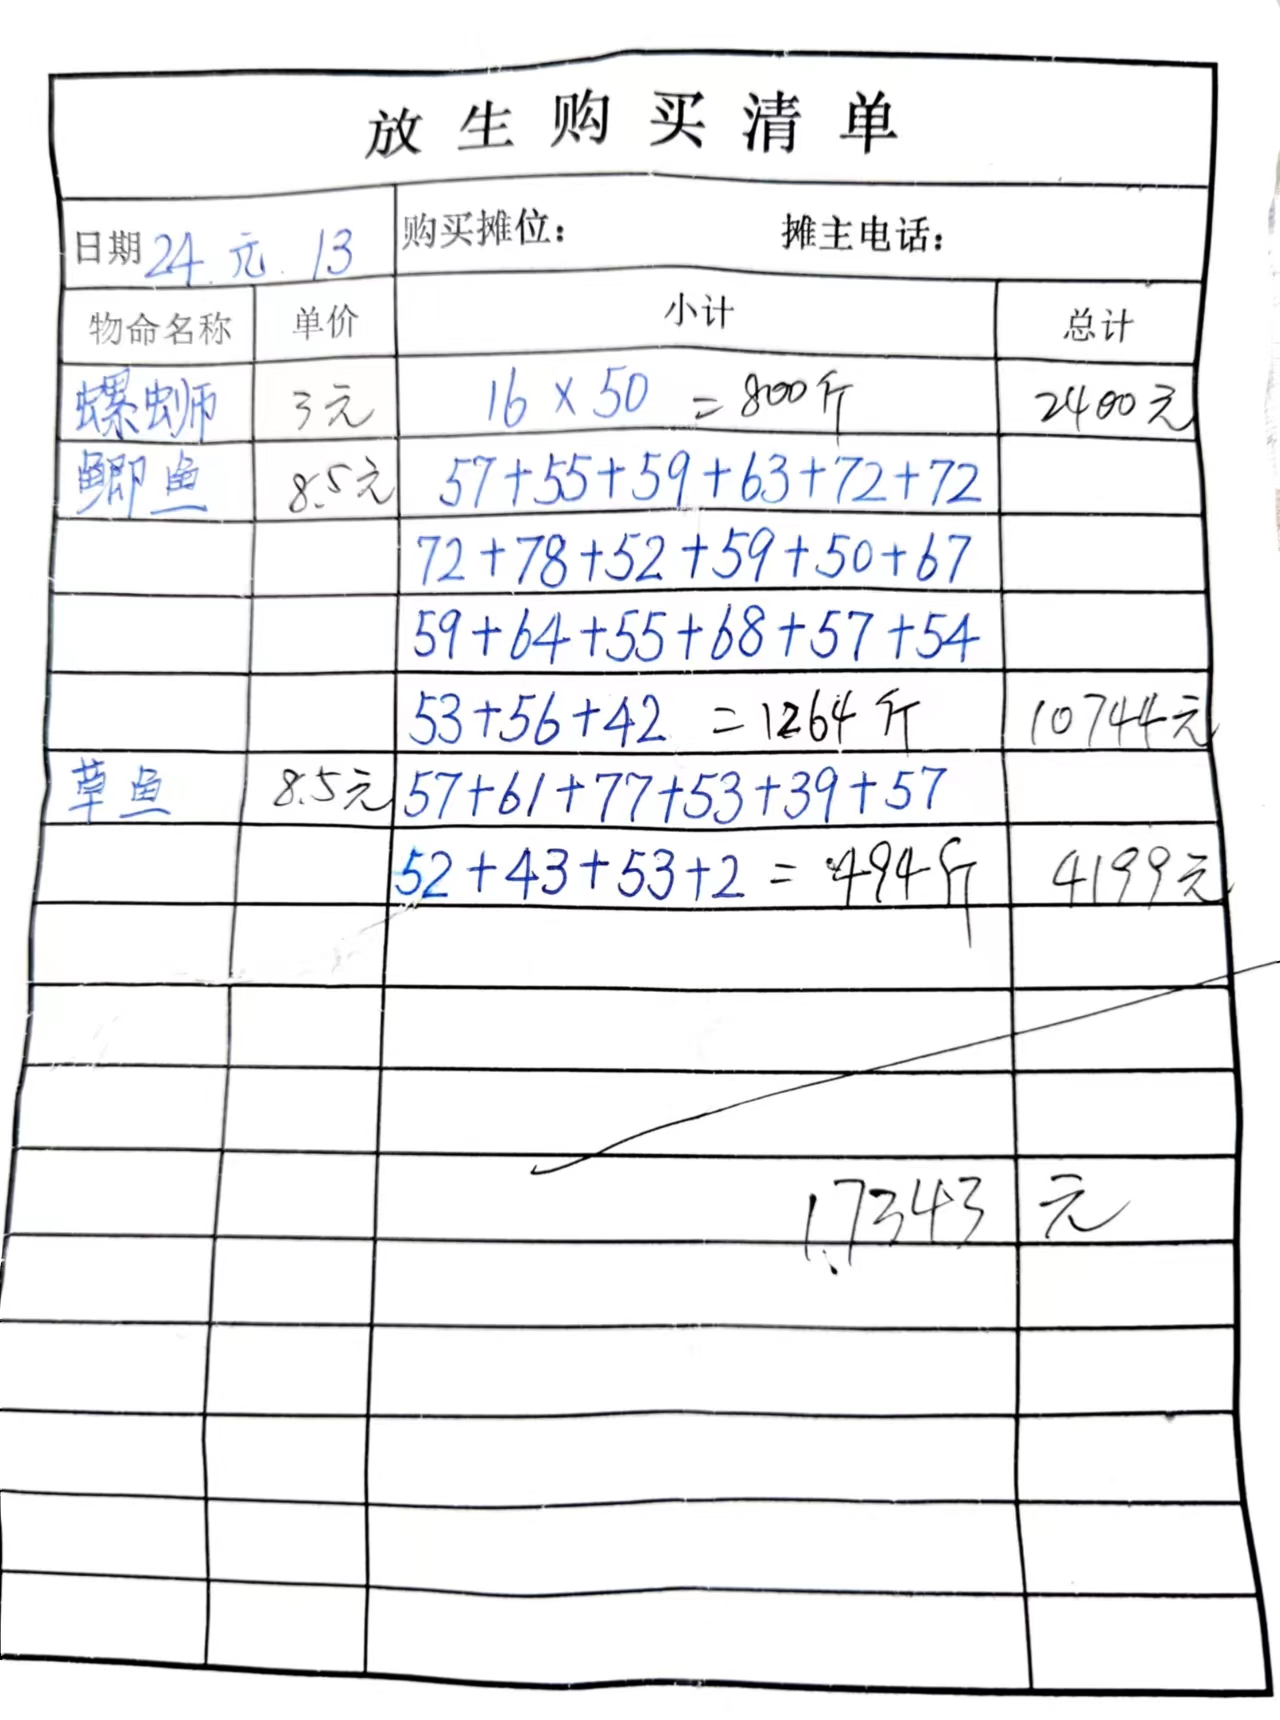 放生购买清单
日期 24. 元. 13 购买摊位： 摊主电话：
物命名称 单价 小计 总计
螺蛳 3元 16×50 =800斤 2400元
鲫鱼 8.5元 57+55+59+63+72+72
72+78+52+59+50+67
59+64+55+68+57+54
53+56+42 =1264斤 10744元
草鱼 8.5元 57+61+77+53+39+57
52+43+53+2 = 494斤 4199元
17343元